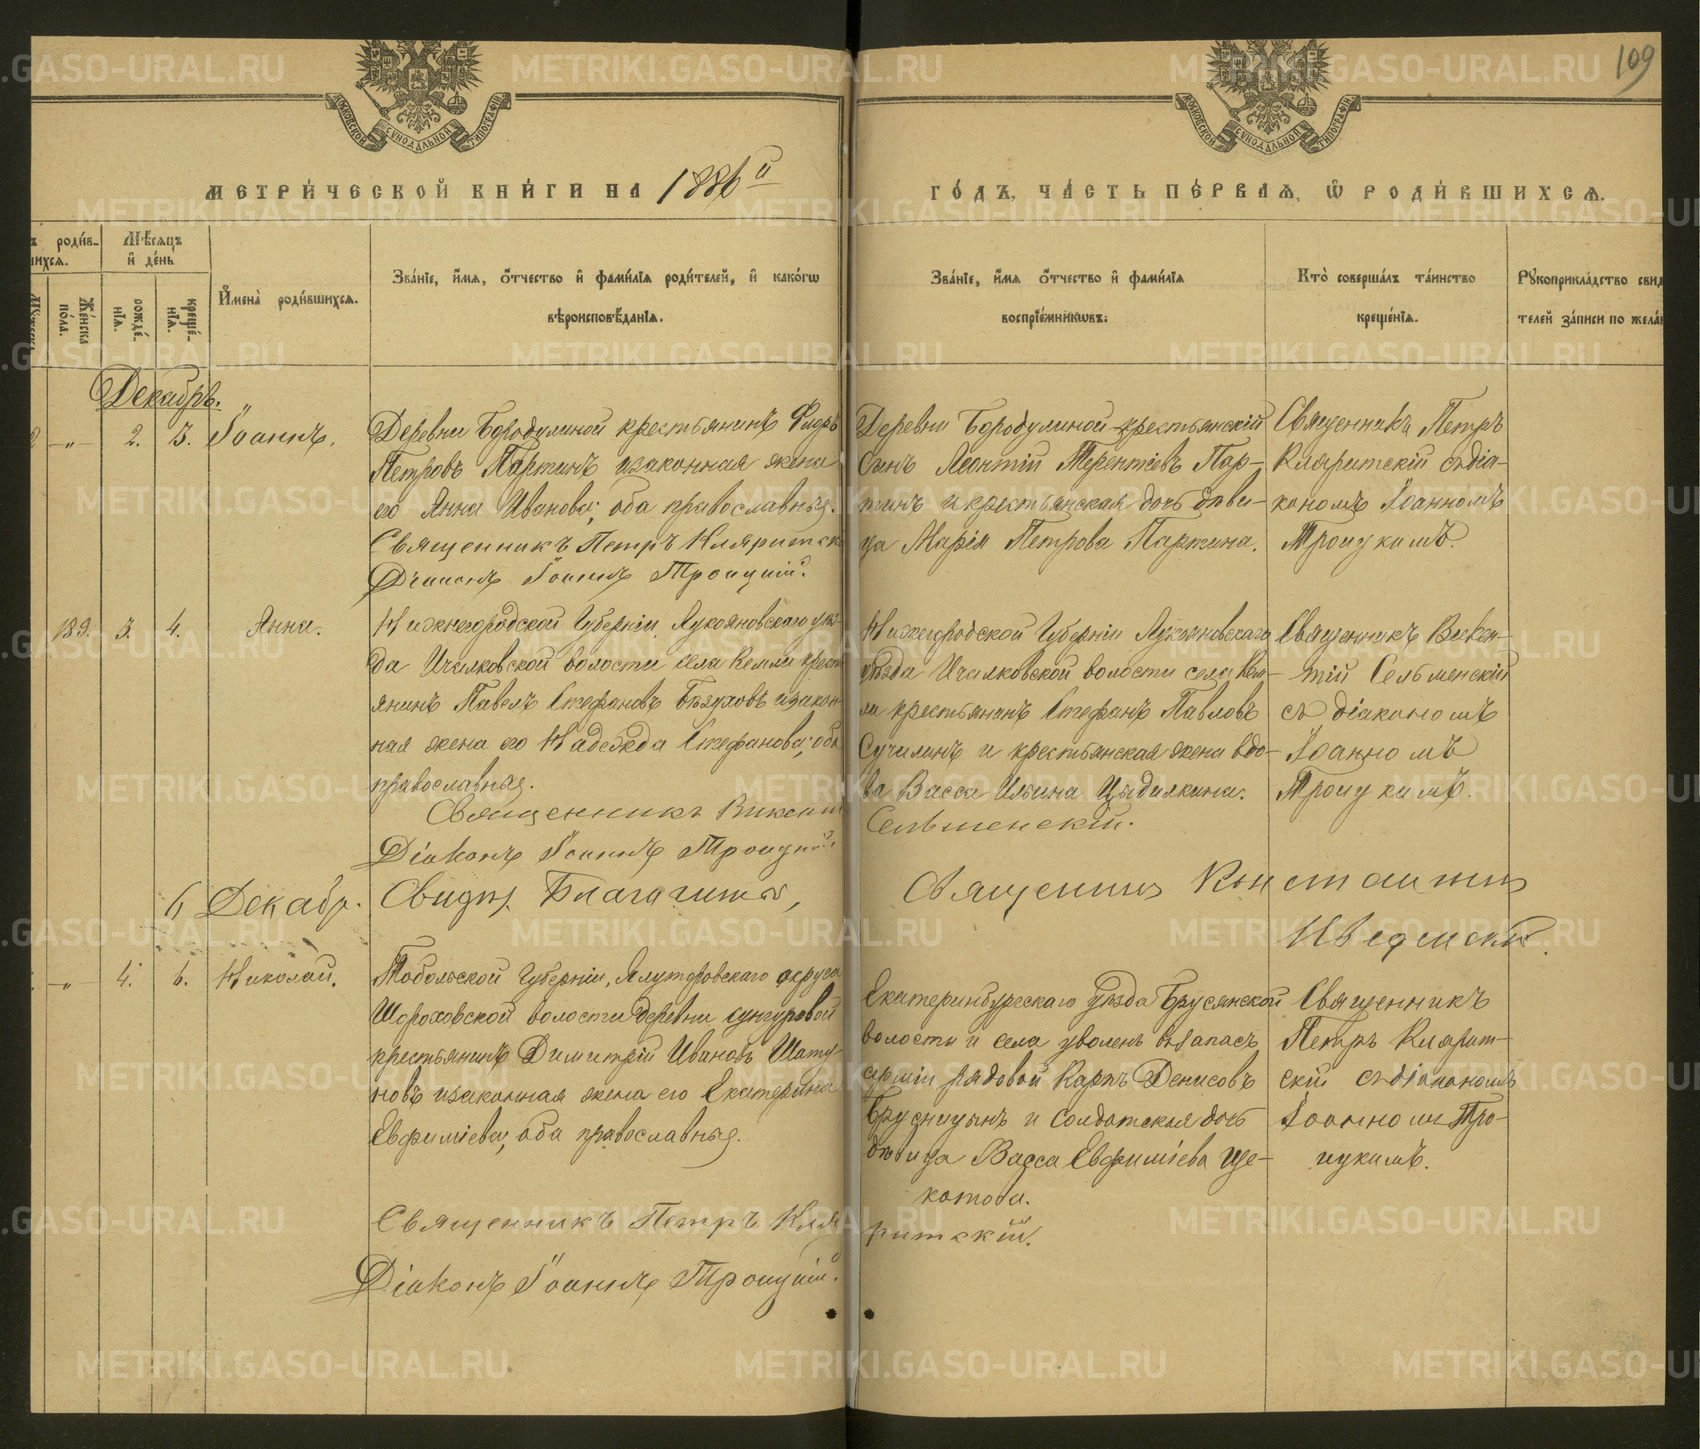 109
МЕТРИ́ЧЕСКОЙ КНИ́ГИ НА 1886 й
ГО́ДЪ, ЧА́СТЬ ПЕ́РВАЯ, Ѿ РОДИ́ВШИХСЯ.
МОСКОВСКОЙ СѴНОДАЛЬНОЙ ТИПОГРАФІИ
МОСКОВСКОЙ СѴНОДАЛЬНОЙ ТИПОГРАФІИ
ъ роди́в-
шихся.
Мѣ́сяцъ
и҆ де́нь
Же́нска
по́ла.
рожде́-
нія.
креще́-
нія.
И҆мена̀ роди́вшихся.
Зва́нїе, и҆́мя, ѻ҆́тчество и҆ фами́лїя роди́телей, и҆ како́гѡ
вѣроисповѣ́данїя.
Зва́нїе, и҆́мя ѻ҆́тчество и҆ фами́лїя
воспрїе́мникѡвъ.
Кто̀ соверша́лъ та́инство
креще́нїя.
Рꙋкоприкла́дство свид
телей за́писи по жела́
Декабрь.
-„- 2. 3. Іоаннъ.
Деревни Бородулиной крестьянинъ Ѳедръ
Петровъ Паржинъ изаконная жена
его Анна Иванова; оба православные.
Священникъ Петръ Кляритск
Діаконъ Іоаннъ Троицкій.
Деревни Бородулиной крестьянскій
сынъ Леонтій Терентіевъ Пар-
жинъ и крестьянская дочь дѣви-
ца Марія Петрова Паржина.
Священникъ Петръ
Кляритскій съ діа-
кономъ Іоанномъ
Троицкимъ.
189. 3. 4. Анна.
Нижнегородской Губерніи, Лукояновскаго уѣз-
да Ичалковской волости села Кемли крест
янинъ Павелъ Стефановъ Безуховъ изакон-
ная жена его Надежда Стефанова; оба
православные.
Священникъ Викент
Діаконъ Іоаннъ Троицкій.
Нижегородской Губерніи Лукояновскаго
уѣзда Ичалковской волости села Кем-
ли крестьянинъ Стефанъ Павловъ
Сучилинъ и крестьянская жена вдо-
ва Васса Ильина Цыдилкина.
Сельменскій.
Священникъ Викен-
тій Сельменскій
съ діакономъ
Іоанномъ
Троицкимъ.
6 Декабр. Свидѣт. Благочин.,
Священникъ Константинъ
-„- 4. 6. Николай.
Тобольской Губерніи, Ялуторовскаго округа
Шороховской волости деревни Сунгуровой
крестьянинъ Димитрій Ивановъ Шату-
новъ изаконная жена его Екатерина
Евфиміева; оба православные.
Священникъ Петръ Кля
Діаконъ Іоаннъ Троицкій.
Екатеринбургскаго уѣзда Брусянской
волости и села уволенъ въ запасъ
арміи рядовой Карпъ Денисовъ
Брусницынъ и солдатская дочь
дѣвица Васса Евфиміева Ще-
котова.
ритскій.
Священникъ
Петръ Клярит-
скій съ діакономъ
Іоанномъ Тро-
ицкимъ.
METRIKI.GASO-URAL.RU